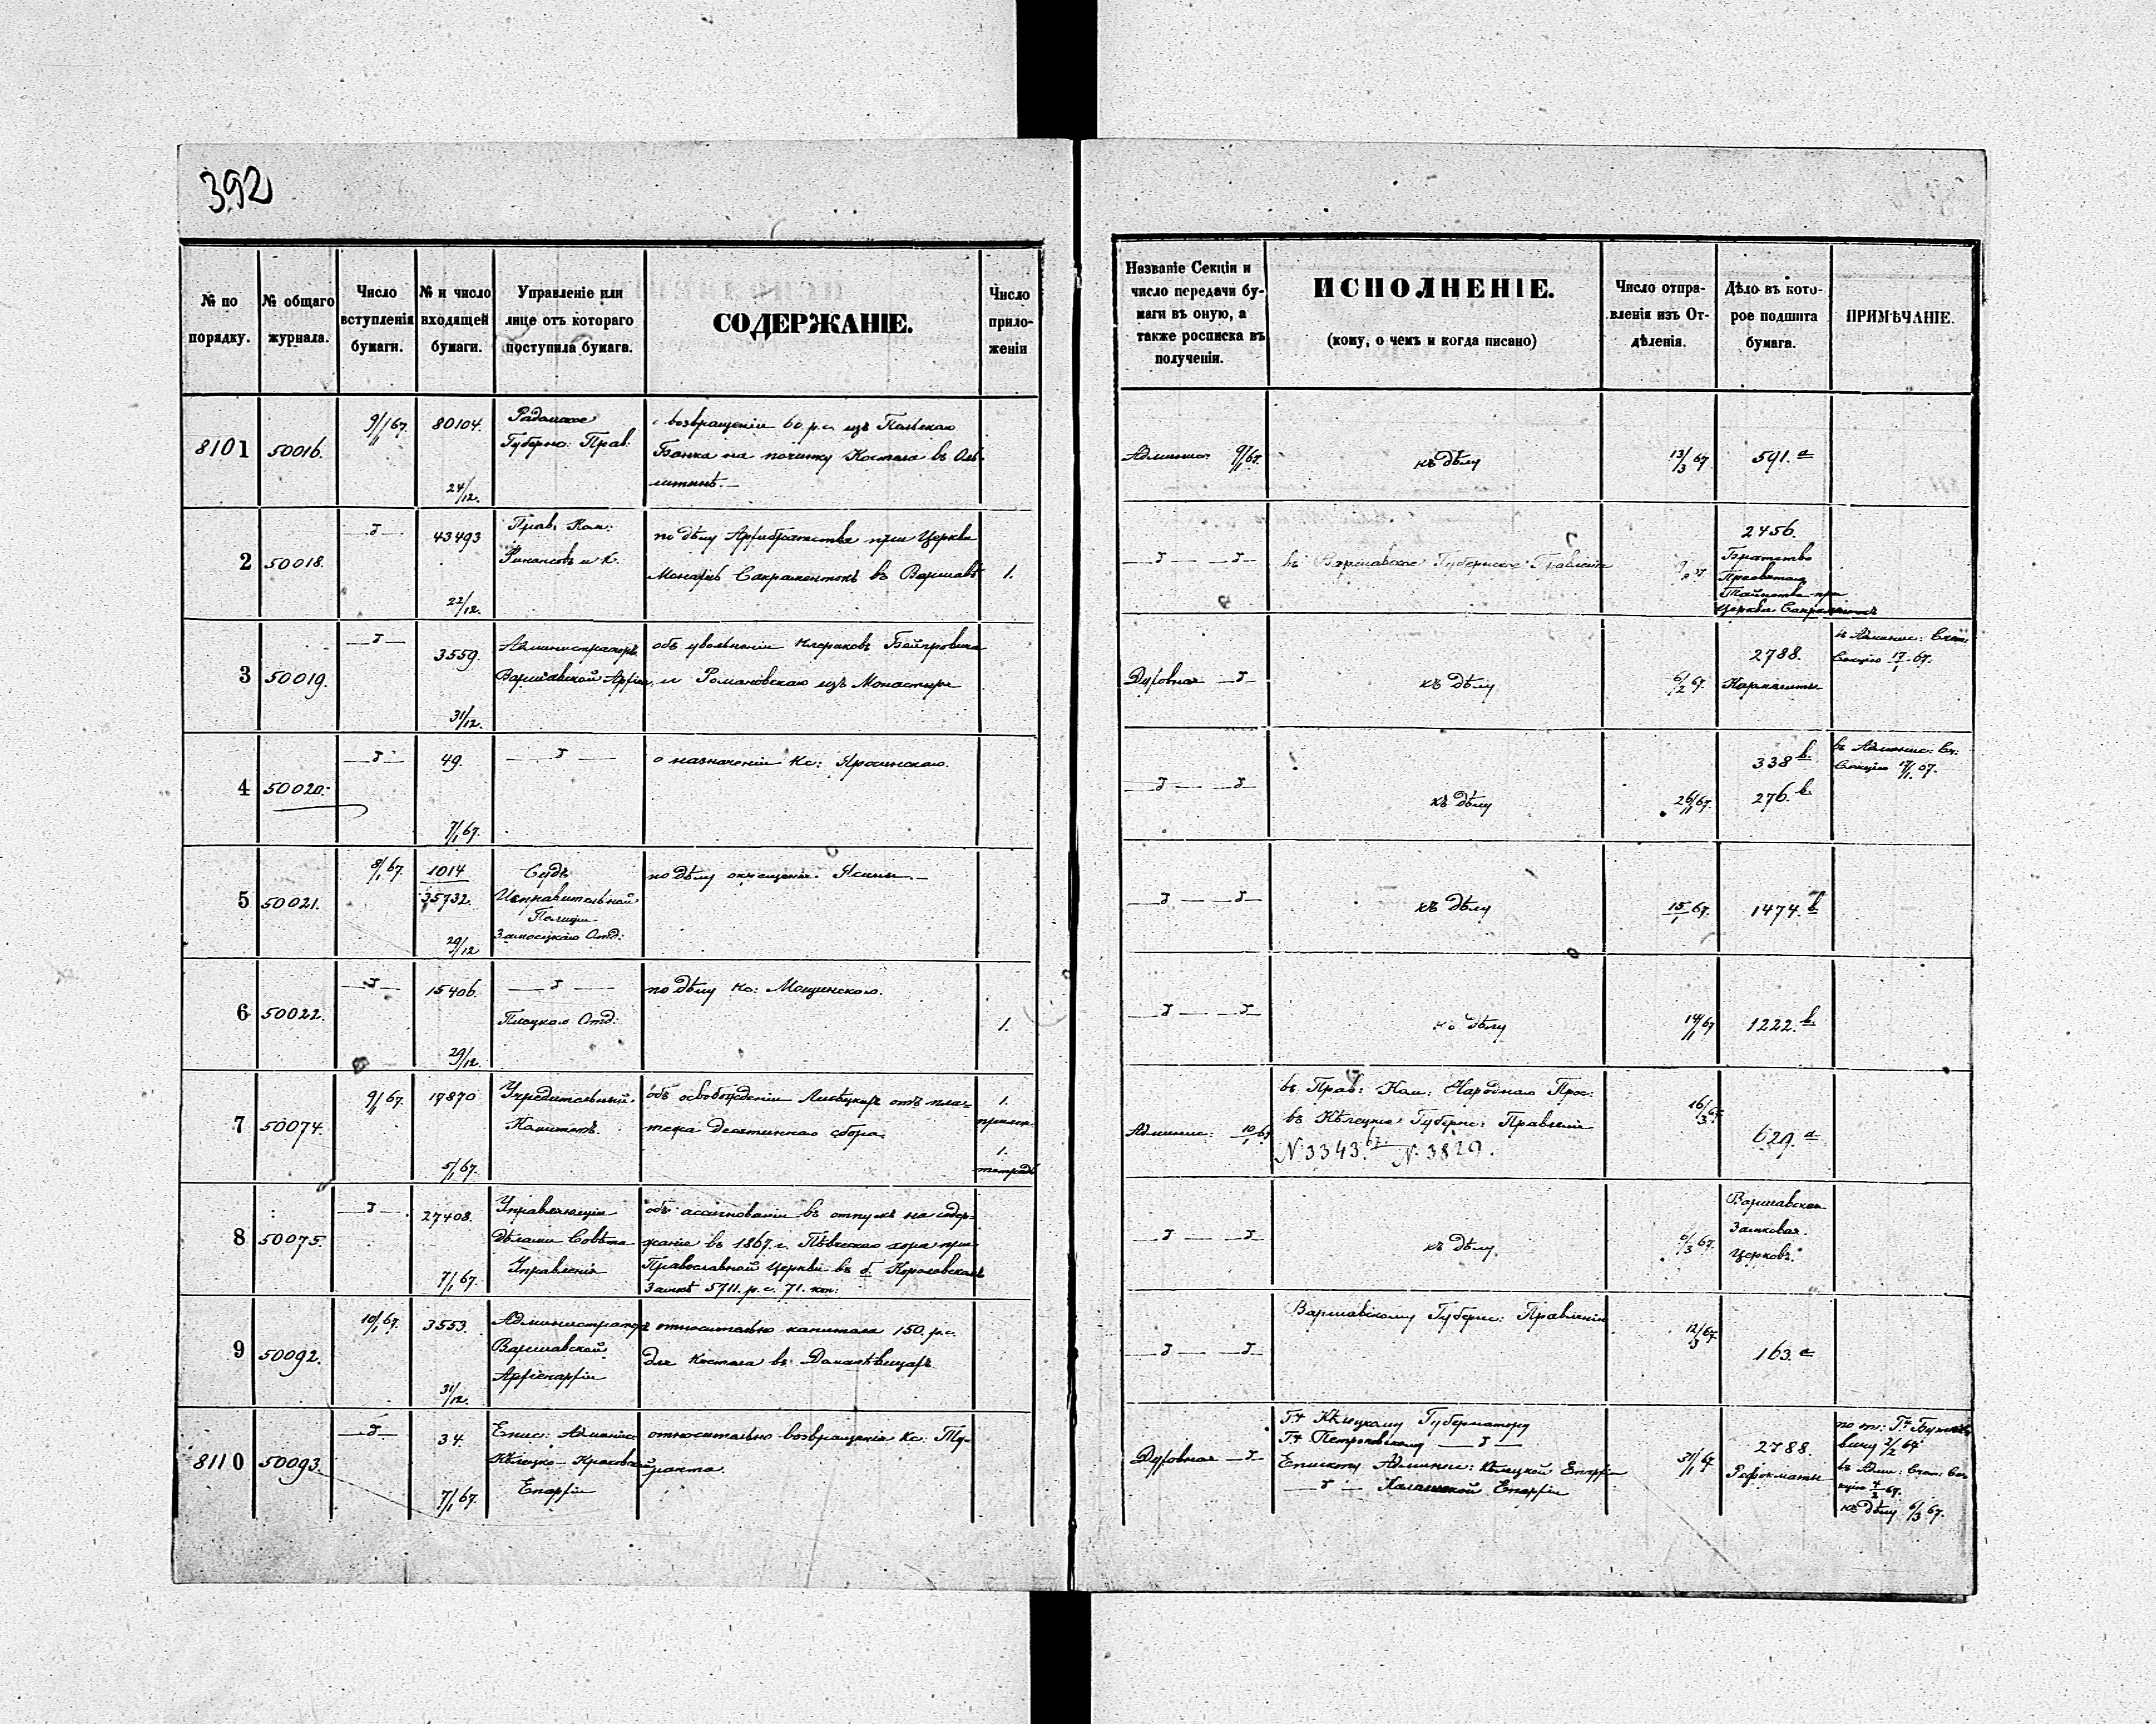 392
№ по порядку.
№ общаго журнала.
Число вступленія бумаги.
№ и число входящей бумаги.
Управленіе или лице отъ котораго поступила бумага.
СОДЕРЖАНІЕ.
Число приложеніи
Названіе Секціи и число передачи бумаги въ оную, а также росписка въ полученіи.
ИСПОЛНЕНІЕ.
(кому, о чемъ и когда писано)
Число отправленія изъ Отдѣленія.
Дѣло въ которое подшита бумага.
ПРИМѢЧАНІЕ.
8101 50016. 9/1 67. 80104. 24/12.
Радомское
Губерно: Прав:
о возвращеніи 60 р.с. изъ Польскаго
Банка на починку Костела въ
Админис. 9/1 67.
къ дѣлу
13/3 67
591. а
2 50018. 43493 22/12.
Прав: Ком:
Финансовъ и К.
по дѣлу Архибратства при Церкви
Монахинь Сакраментокъ въ Варшавѣ
1.
въ Варшавское Губернское Правленіе
2456.
Братство
Пресвятаго
Таинства при
Церкви Сакраментокъ
3 50019. 3559. 31/12.
Администраторъ
Варшавской Архіеп.
объ увольненіи Клериковъ
и Романовскаго изъ Монастыря
Духовная
къ дѣлу
6/2 67.
2788.
Кармелиты
въ Админис: Счет:
Секцію 17/1 67.
4 50020. 49. 7/1 67.
о назначеніи Кс: Яросинскаго.
къ дѣлу
26/1 67.
338 b.
276. b.
въ Админис: Сч:
Секцію 17/1 67.
5 50021. 8/1 67. 1014
35732. 29/12
Судъ
Исправительной
Полиціи
Замосцкаго Отд:
по дѣлу
къ дѣлу
15/1 67.
1474. b.
6 50022. 15406. 29/12.
Плоцкаго Отд:
по дѣлу Кс: Мощинскаго.
1.
къ дѣлу
14/1 67
1222. b.
7 50074. 9/1 67. 17870 5/1 67.
Учредительный
Комитетъ.
объ освобожденіи отъ пла-
тежа десятиннаго сбора
1.
прилож.
1.
тетрадь
Админис: 10/1 67
въ Прав: Ком: Народнаго Прос:
въ Кѣлецкое Губернс: Правленіе
N 3343. N. 3829.
16/3 67
629. а
8 50075. 27408. 7/1 67.
Управляющій
дѣлами Совѣта
Управленія
объ ассигнованіи въ отпускъ на содер-
жаніе въ 1867. г. Пѣвческаго хора при
Православной Церкви въ б. Королевскомъ
Замкѣ 5711. р. с. 71. коп:
къ дѣлу
6/3 67.
Варшавская
Замковая
Церковь.
9 50092. 10/1 67. 3553. 31/12.
Администраторъ
Варшавской
Архіепархіи
относительно капитала 150. р.с.
для Костела въ
Варшавскому Губернс: Правленію
12/3 67
163.
8110 50093. 34. 7/1 67.
Епис: Админис:
Кѣлецко-Краковской
Епархіи
относительно возвращенія Кс. Ту-
Духовная
Г-у Кѣлецкому Губернатору
Г-у Петроковскому
Епископу Админис: Кѣлецкой Епархіи
Калишской Епархіи
31/1 67
2788
Реформаты
въ Админ: Счет: Сек-
цію 4/2 67.
къ дѣлу 6/3 67.